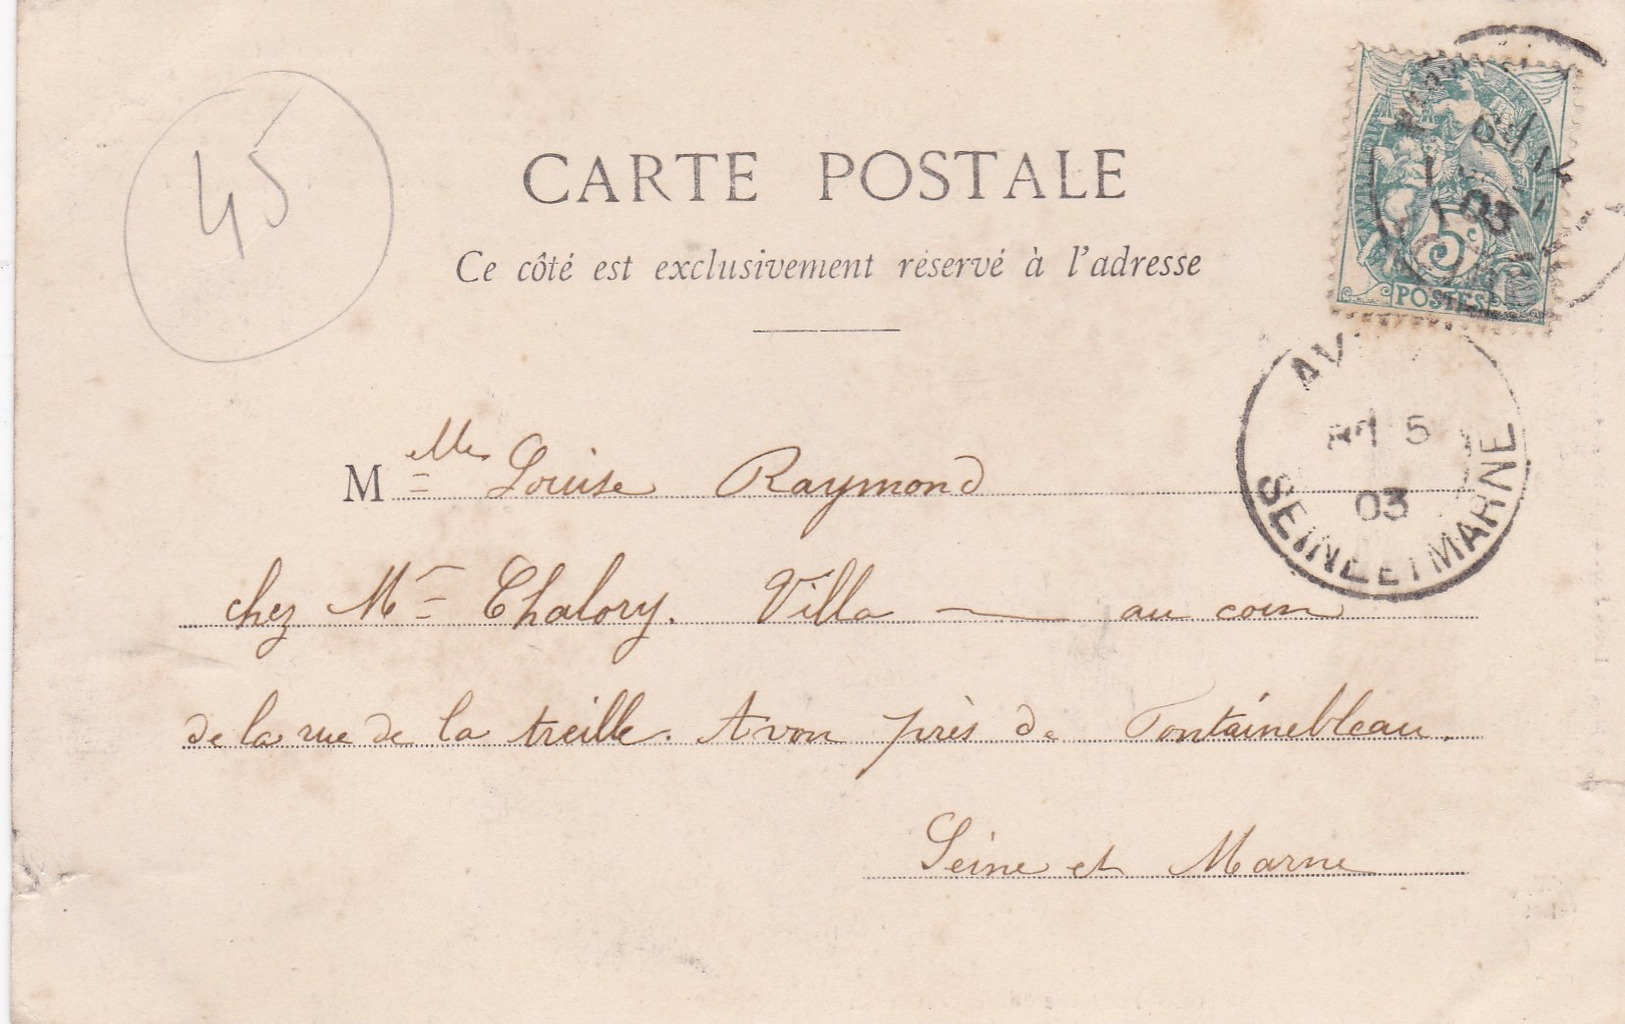 45
CARTE POSTALE
Ce côté est exclusivement réservé à l'adresse
5c
POSTES
03
AV
5
03
SEINE ET MARNE
Melle Louise Raymond
chez Me Chalory. Villa — au coin
de la rue de la treille. Avon près de Fontainebleau.
Seine et Marne